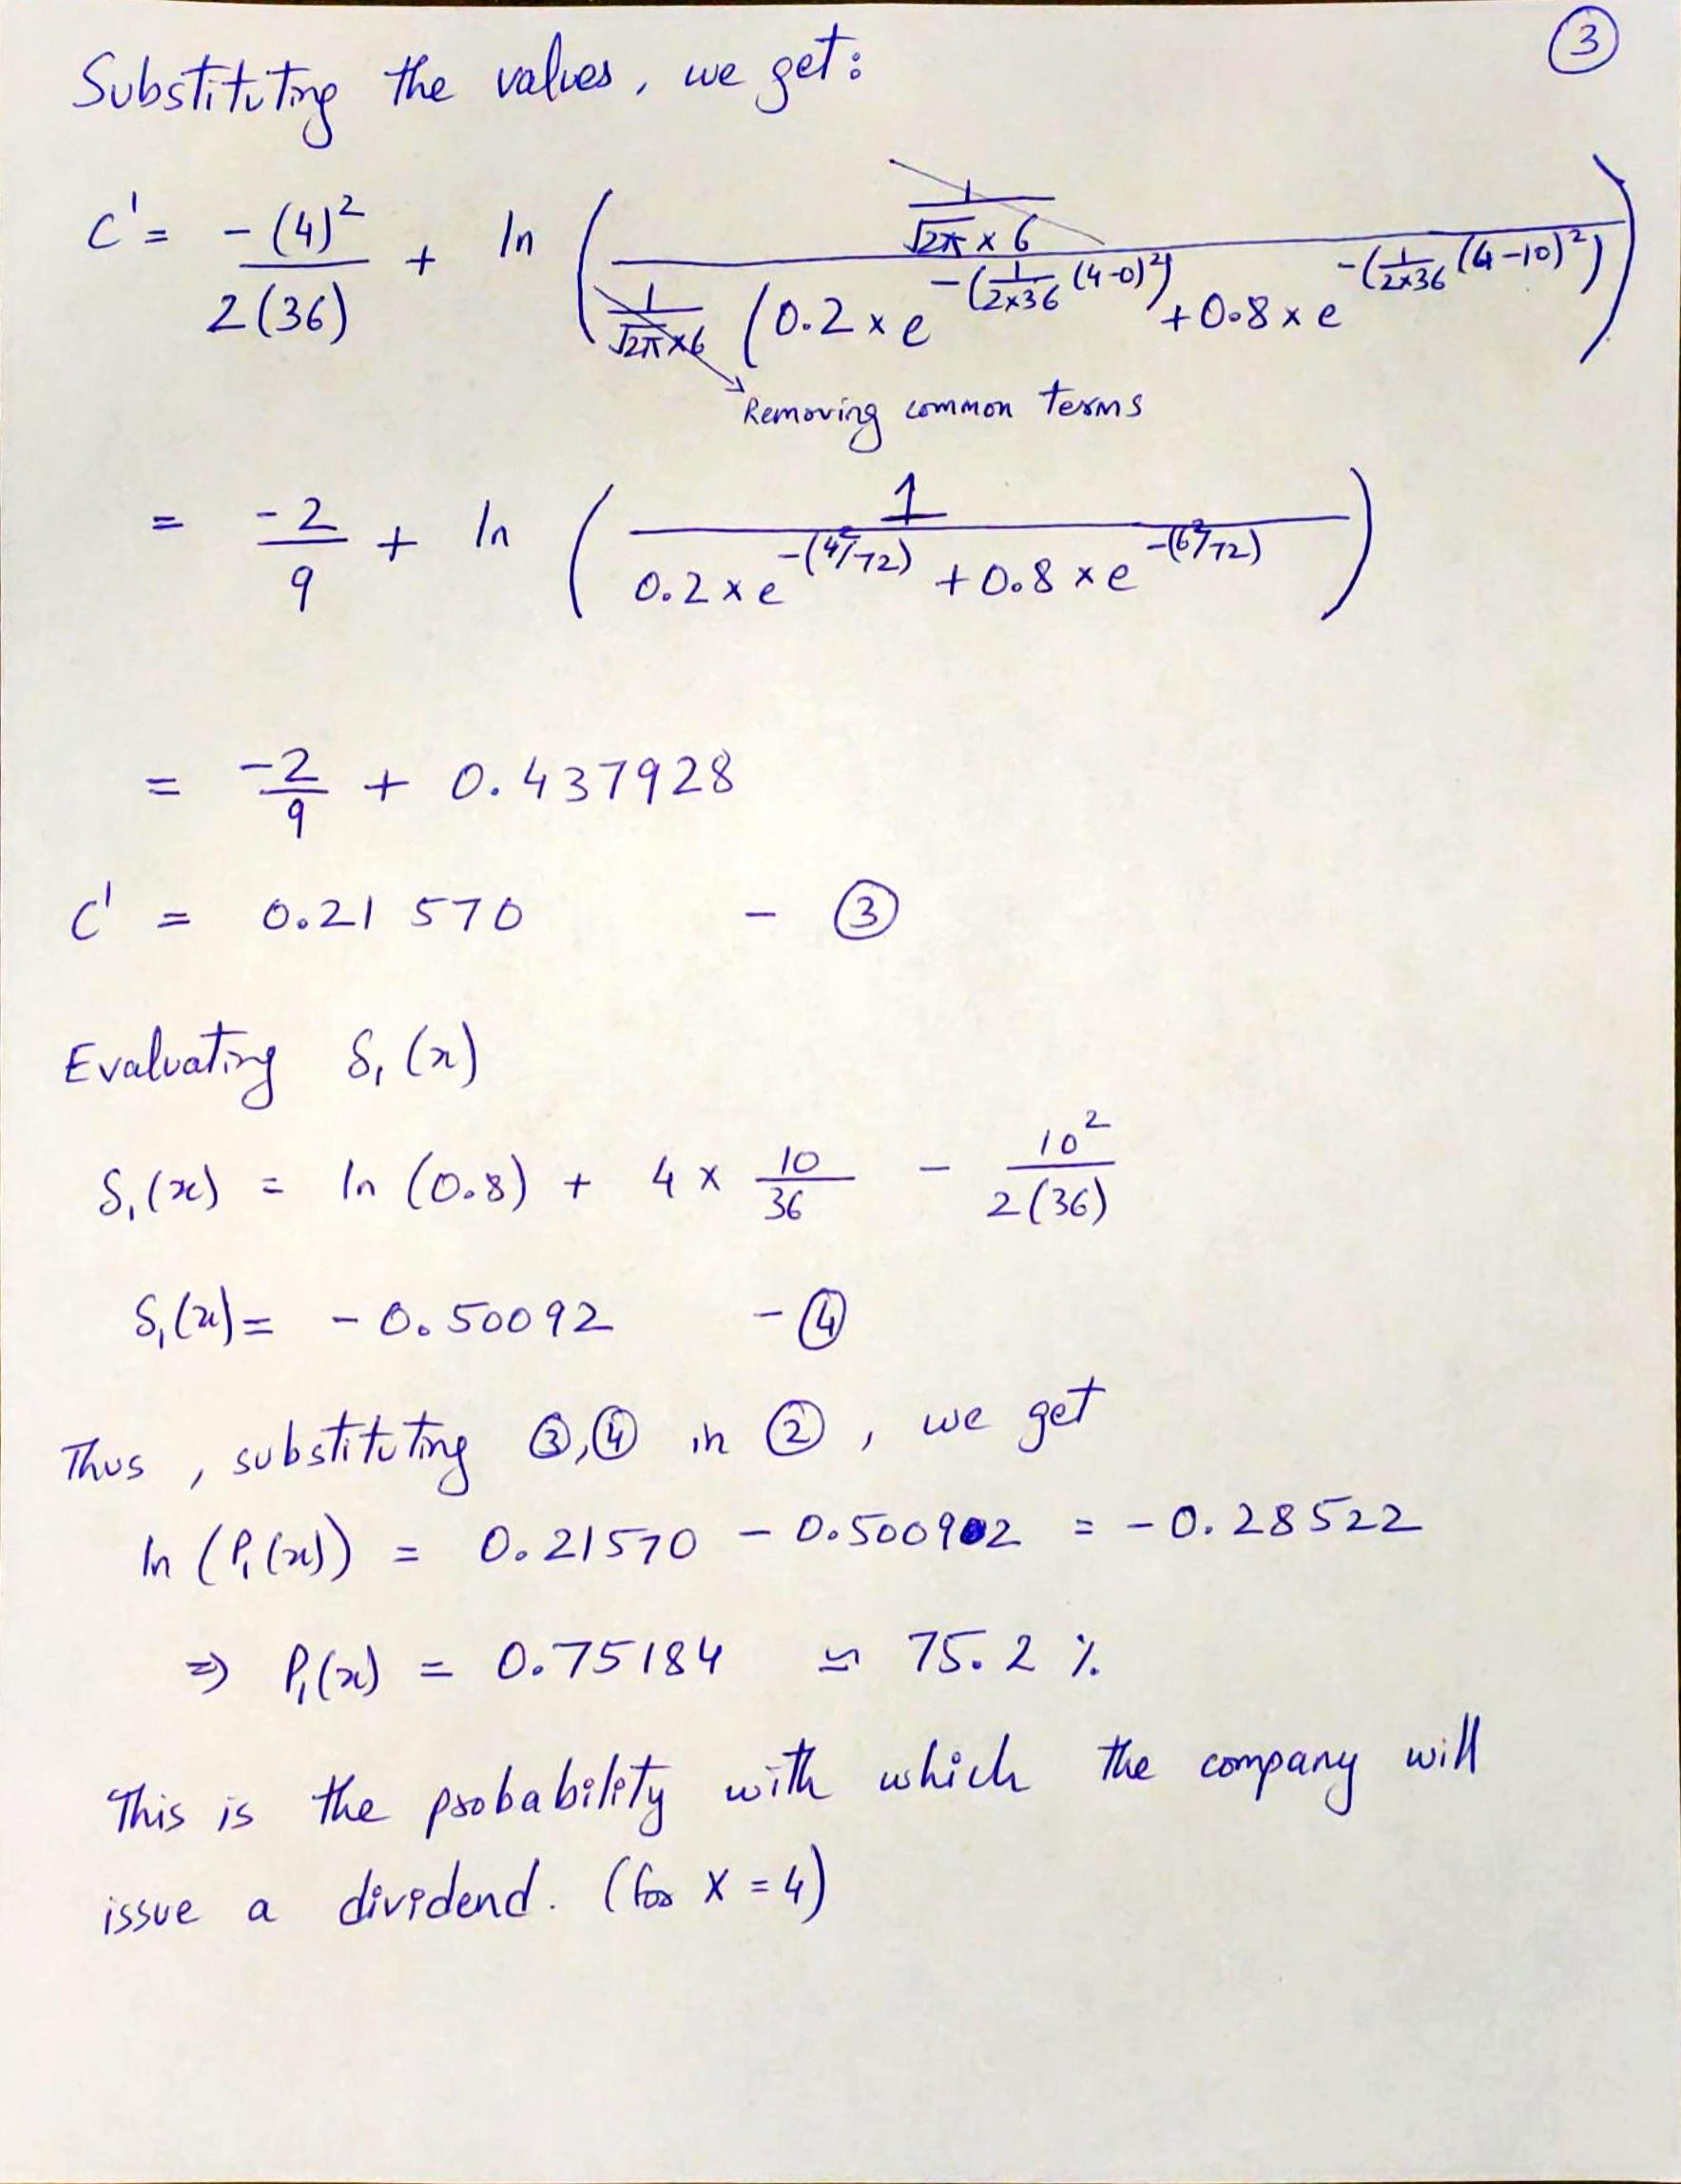 ③
Substituting the values, we get:
C' = -(4)²/2(36) + ln ( (1/√2π × 6) / (1/√2π × 6 (0.2 × e^-(1/2×36 (4-0)²) + 0.8 × e^-(1/2×36 (4-10)²)) )
Removing common terms
= -2/9 + ln ( 1 / 0.2 × e^-(4²/72) + 0.8 × e^-(6²/72) )
= -2/9 + 0.437928
C' = 0.21570 - ③
Evaluating δ₁(x)
δ₁(x) = ln (0.8) + 4 × 10/36 - 10²/2(36)
δ₁(x) = - 0.50092 - ④
Thus, substituting ③,④ in ②, we get
ln (P₁(x)) = 0.21570 - 0.500902 = - 0.28522
⇒ P₁(x) = 0.75184 ≃ 75.2 %
This is the probability with which the company will
issue a dividend. (for X = 4)